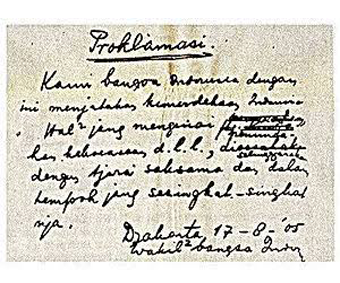 Proklamasi.
Kami bangsa Indonesia dengan
ini menjatakan kemerdekaan Indonesia
Hal² jang mengenai peminda-
han kekoeasaan d.l.l.,
dengan tjara saksama dan dalam
tempoh jang sesingkat-singkat
nja.
Djakarta, 17-8-'05
Wakil² bangsa